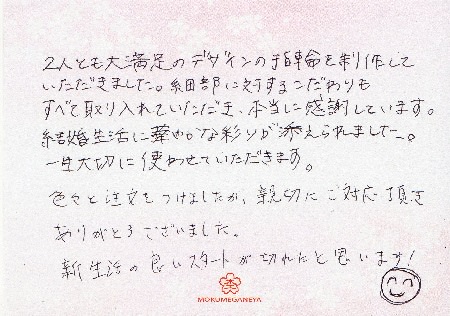 2人とも大満足のデザインの指輪を制作して
いただきました。細部に対するこだわりも
すべて取り入れていただき、本当に感謝しています。
結婚生活に華やかな彩りが添えられました。
一生大切に使わせていただきます。
色々と注文をつけましたが、親切にご対応頂き
ありがとうございました。
新生活の良いスタートが切れたと思います!
MOKUMEGANEYA